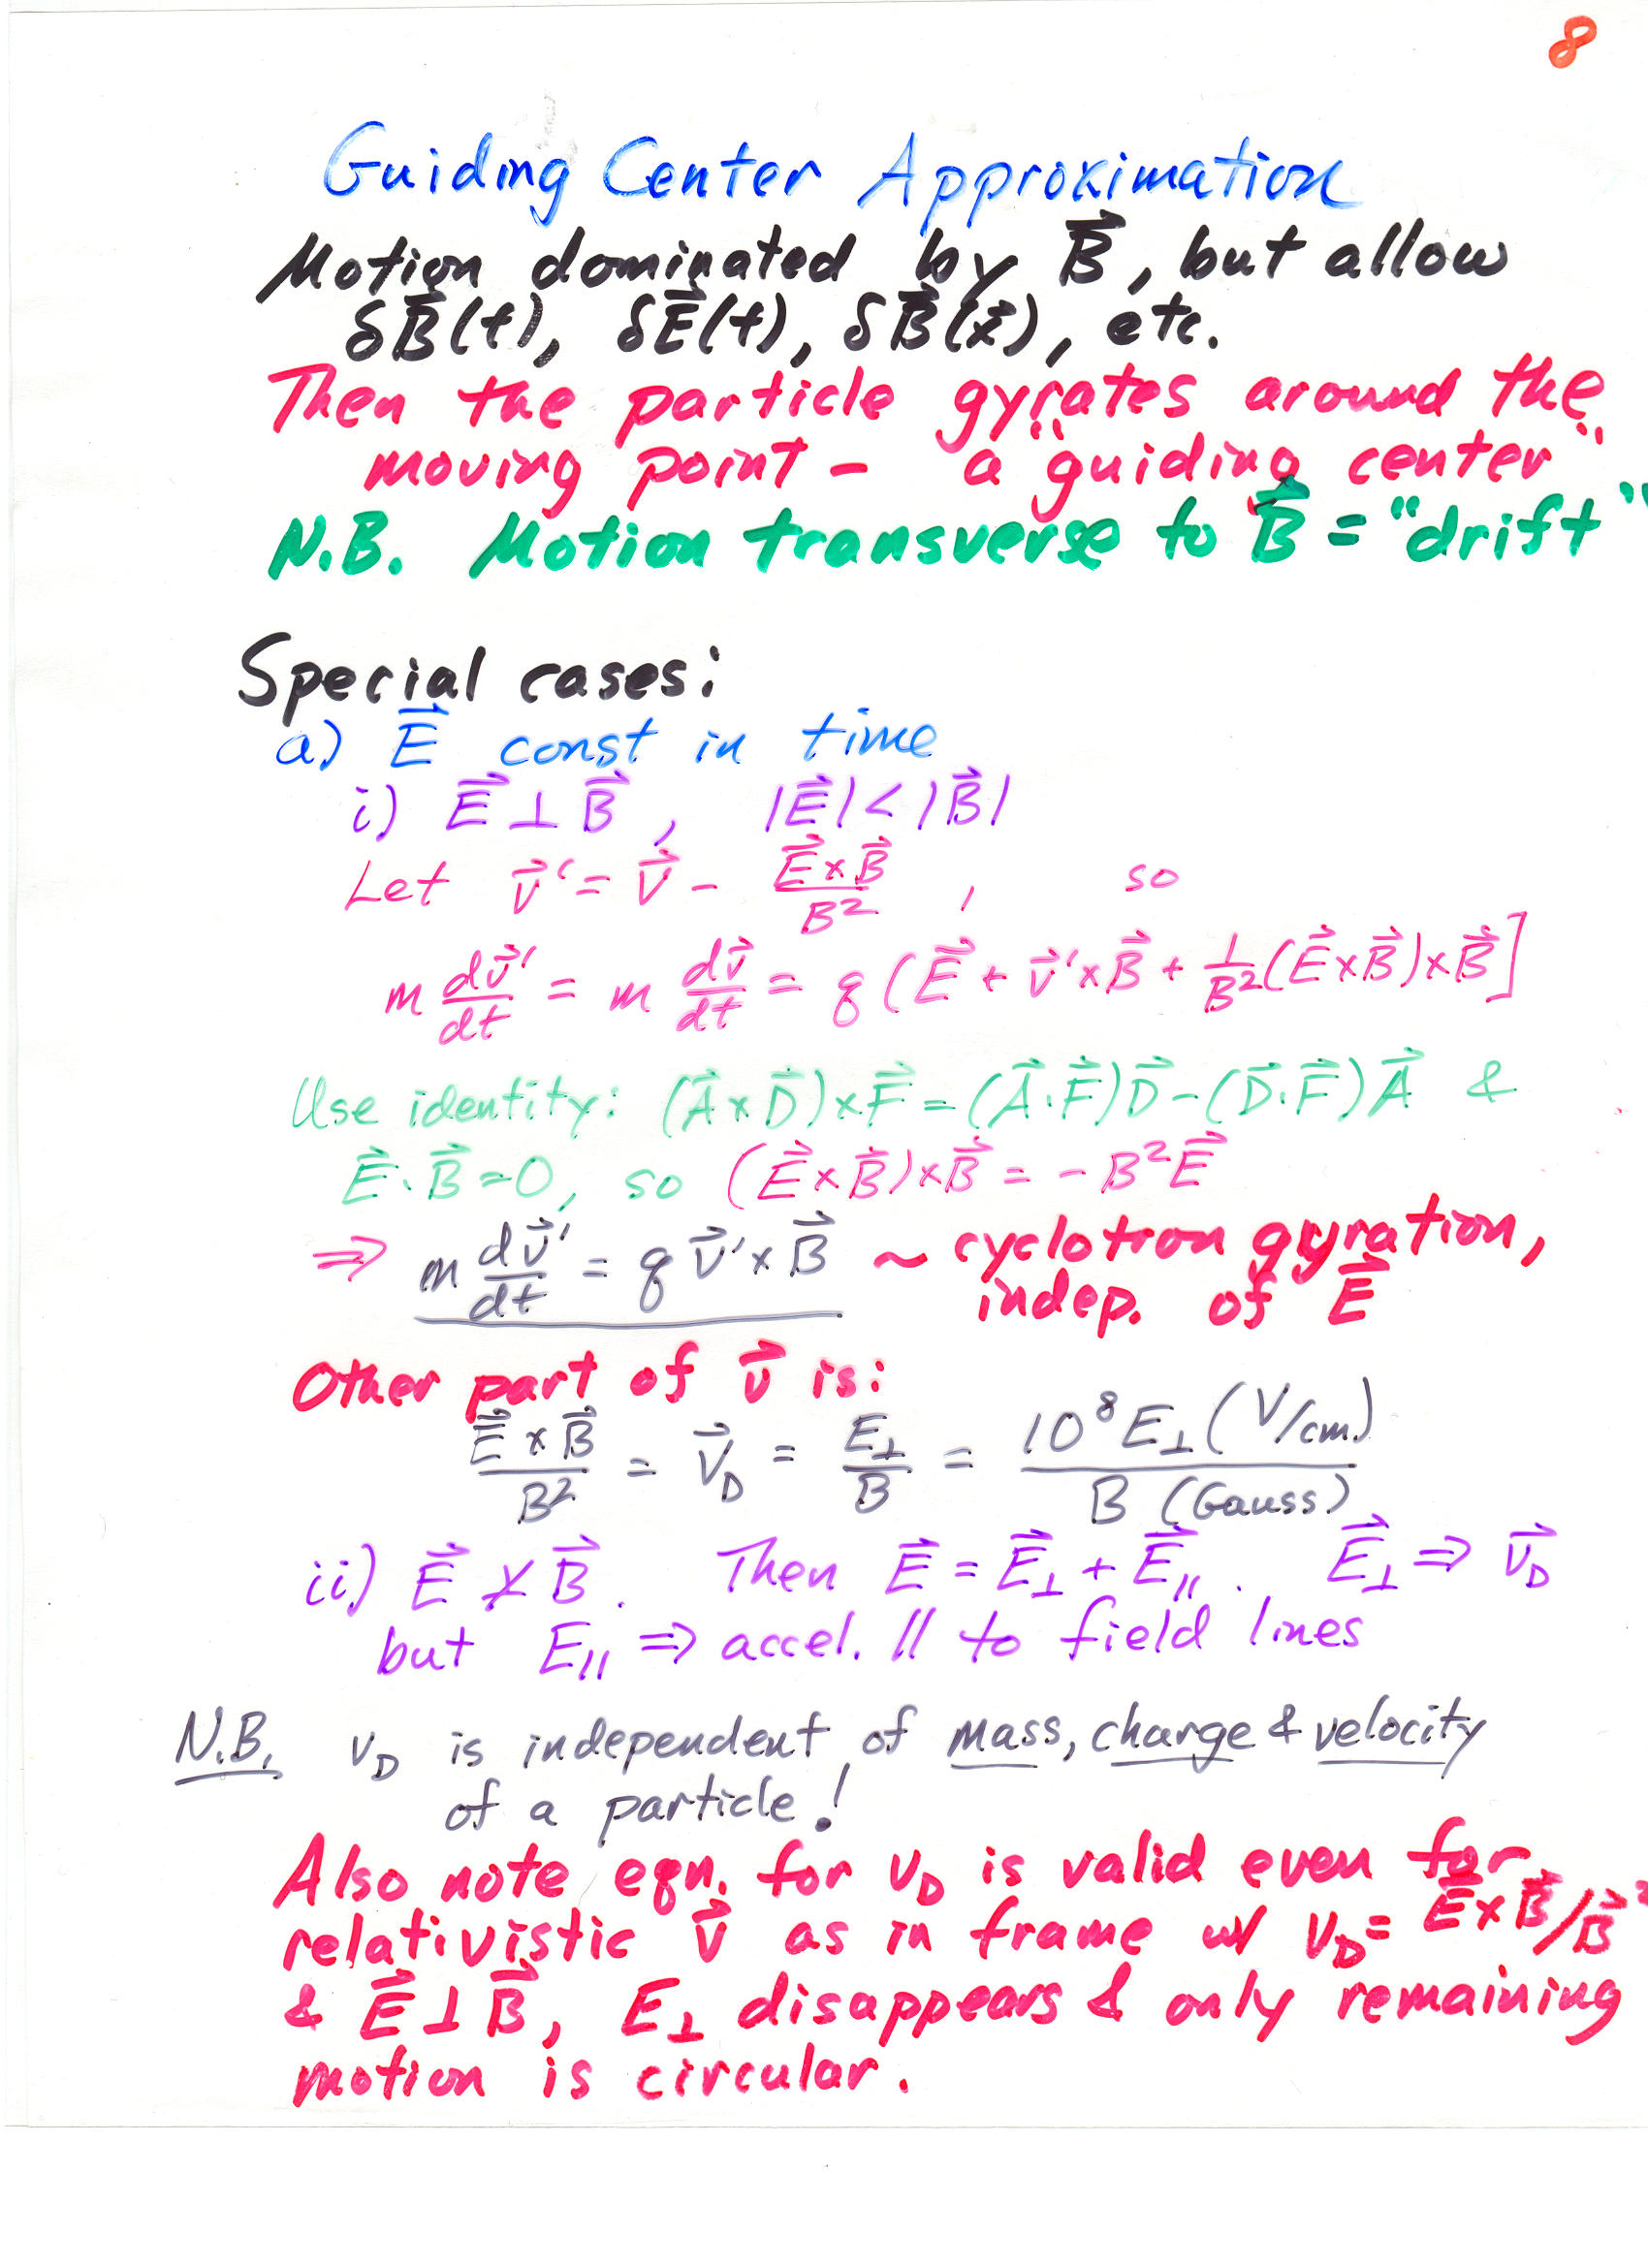 8
Guiding Center Approximation
Motion dominated by B⃗, but allow
δB⃗(t), δE⃗(t), δB⃗(x⃗), etc.
Then the particle gyrates around the
moving point - a "guiding center"
N.B. Motion transverse to B⃗ = "drift"
Special cases:
a) E⃗ const in time
i) E⃗ ⊥ B⃗, |E⃗| < |B⃗|
Let v⃗' = v⃗ - E⃗×B⃗/B², so
m dv⃗'/dt = m dv⃗/dt = q(E⃗ + v⃗'×B⃗ + 1/B² (E⃗×B⃗)×B⃗]
Use identity: (A⃗×D⃗)×F⃗ = (A⃗·F⃗)D⃗ - (D⃗·F⃗)A⃗ &
E⃗·B⃗=0, so (E⃗×B⃗)×B⃗ = - B²E⃗
⇒ m dv⃗'/dt = q v⃗'×B⃗ ~ cyclotron gyration,
indep. of E⃗
Other part of v⃗ is:
E⃗×B⃗/B² = v⃗_D = E⊥/B = 10⁸E⊥(V/cm)/B (Gauss)
ii) E⃗ ⊥̸ B⃗. Then E⃗ = E⃗⊥ + E⃗∥. E⃗⊥ ⇒ v⃗_D
but E∥ ⇒ accel. ∥ to field lines
N.B. v_D is independent of mass, charge & velocity
of a particle!
Also note eqn. for v_D is valid even for
relativistic v⃗ as in frame w/ v_D = E⃗×B⃗/B⃗²
& E⃗⊥B⃗, E⊥ disappears & only remaining
motion is circular.